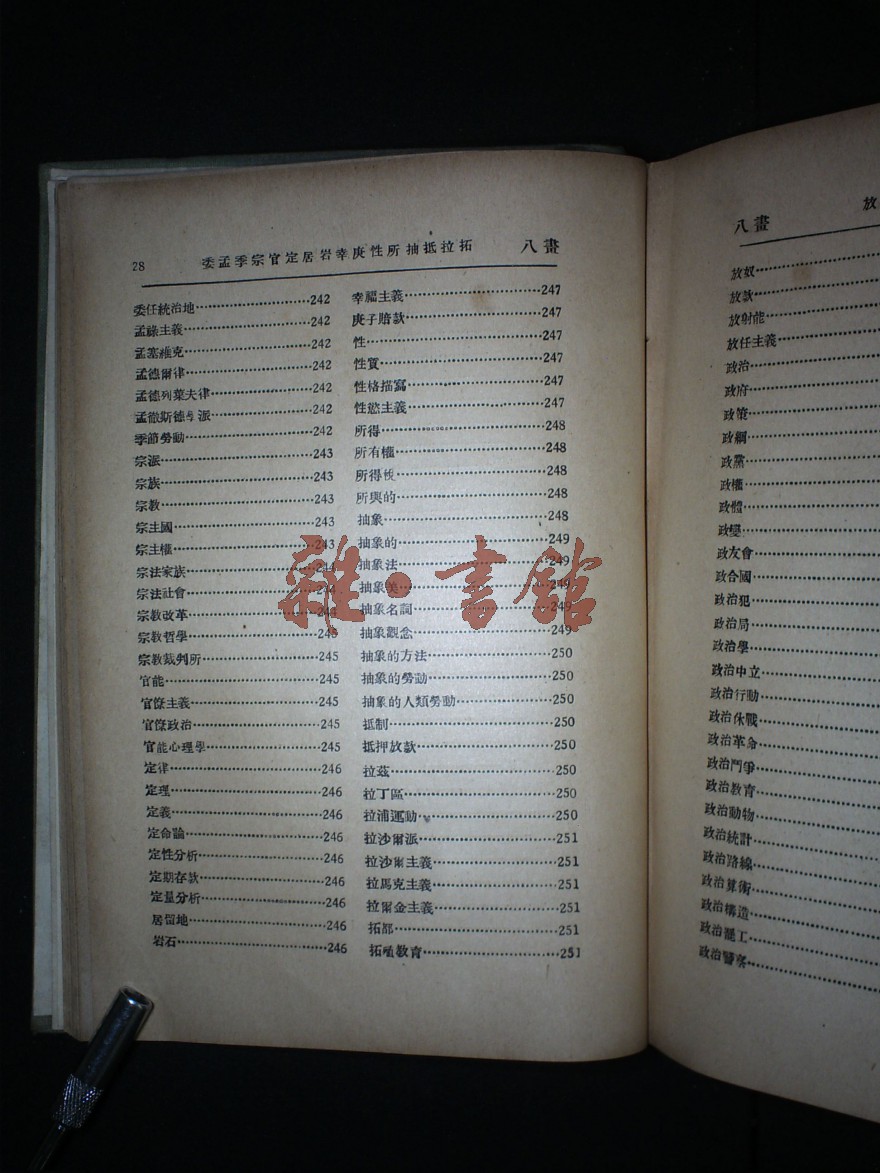 28 委孟季宗官定居岩幸庚性所抽抵拉拓 八畫
委任統治地……242
孟祿主義……242
孟塞維克……242
孟德爾律……242
孟德列葉夫律……242
孟徹斯德學派……242
季節勞動……242
宗派……243
宗族……243
宗教……243
宗主國……243
宗主權……243
宗法家族……244
宗法社會……244
宗教改革……
宗教哲學……245
宗教裁判所……245
官能……245
官僚主義……245
官僚政治……245
官能心理學……245
定律……246
定理……246
定義……246
定命論……246
定性分析……246
定期存款……246
定量分析……246
居留地……246
岩石……246
幸福主義……247
庚子賠款……247
性……247
性質……247
性格描寫……247
性慾主義……247
所得……248
所有權……248
所得稅……248
所與的……248
抽象……248
抽象的……249
抽象法……249
抽象美……249
抽象名詞……249
抽象觀念……249
抽象的方法……250
抽象的勞動……250
抽象的人類勞動……250
抵制……250
抵押放款……250
拉茲……250
拉丁區……250
拉浦運動……250
拉沙爾派……251
拉沙爾主義……251
拉馬克主義……251
拉爾金主義……251
拓都……251
拓殖教育……251
雜·書館
八畫 放
放奴……
放款……
放射能……
放任主義……
政治……
政府……
政策……
政綱……
政黨……
政權……
政體……
政變……
政友會……
政合國……
政治犯……
政治局……
政治學……
政治中立……
政治行動……
政治休戰……
政治革命……
政治鬥爭……
政治教育……
政治動物……
政治統計……
政治路線……
政治算術……
政治構造……
政治罷工……
政治……